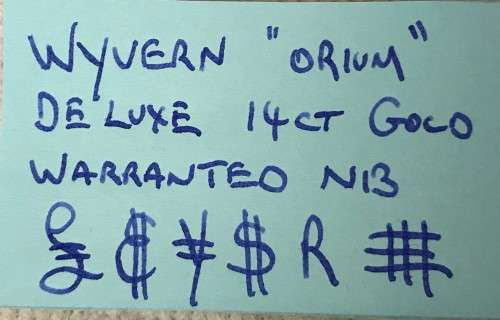 WYVERN "ORIUM"
DE LUXE 14CT GOLD
WARRANTED NIB
£ ₵ ¥ $ R